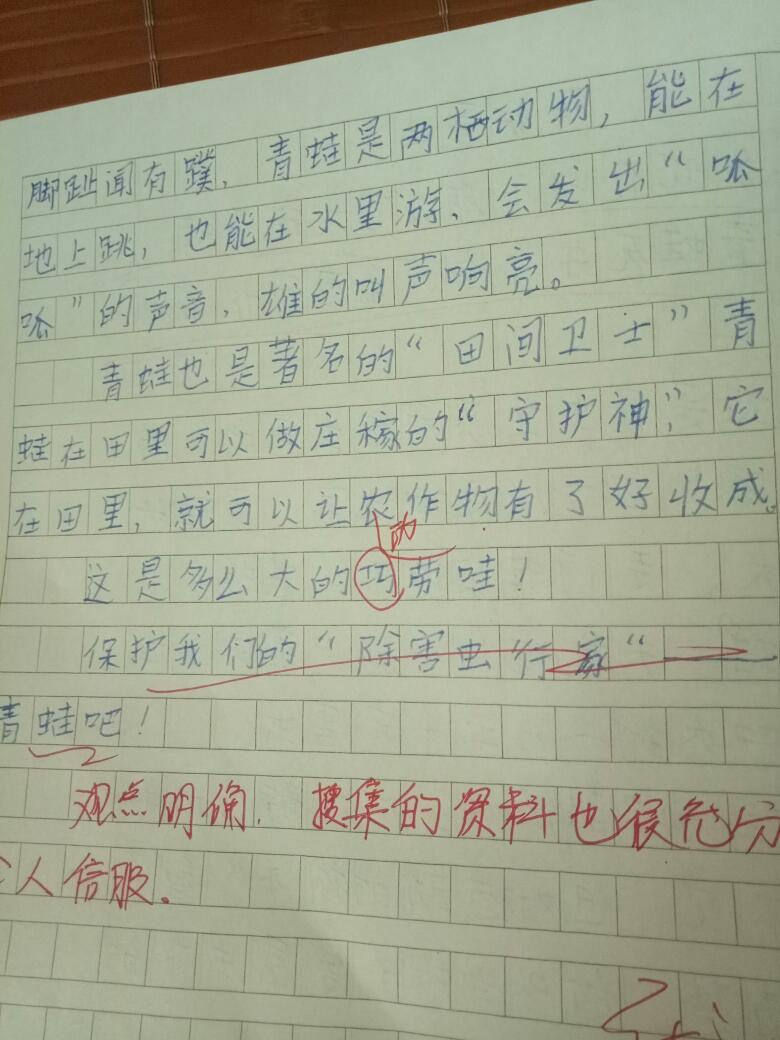 脚趾闻有蹼，青蛙是两栖动物，能在
地上跳，也能在水里游、会发出“呱
呱”的声音，雄的叫声响亮。
青蛙也是著名的“田间卫士”青
蛙在田里可以做庄稼的“守护神”，它
在田里，就可以让农作物有了好收成。
功
这是多么大的巧劳哇！
保护我们的“除害虫行家“——
青蛙吧！
观点明确，搜集的资料也很充分
人信服。